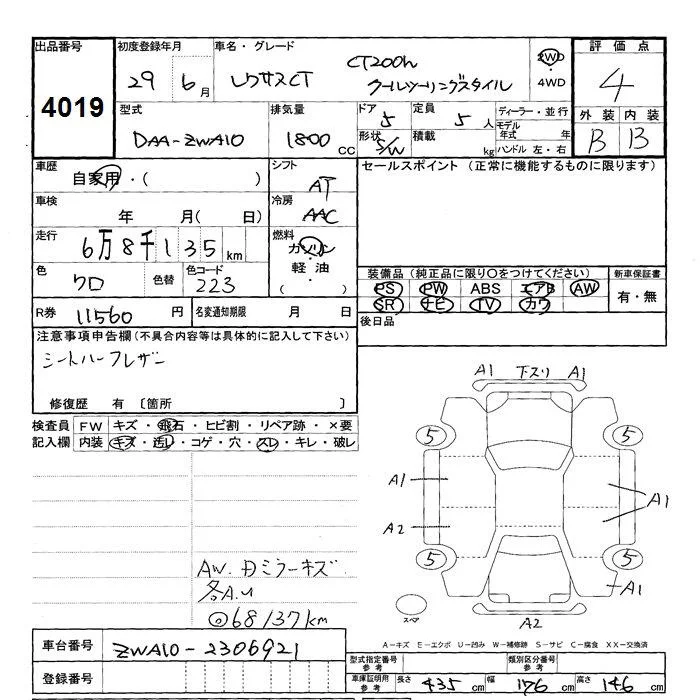 出品番号
4019
初度登録年月
29 6月
車名・グレード
レクサスCT CT200h
クールツーリングスタイル
2WD
・
4WD
評価点
4
型式
DAA-ZWA10
排気量
1800cc
ドア
5
形状
S/W
定員
5人
積載
kg
ディーラー・並行
モデル年式 年
ハンドル 左・右
外装 内装
B B
車歴
自家用・( )
シフト
AT
セールスポイント (正常に機能するものに限ります)
車検
年 月( 日)
冷房
AAC
走行
6万8千135km
燃料
ガソリン
軽油
( )
色
クロ
色替
色コード
223
装備品(純正品に限り〇をつけてください)
PS PW ABS エアB AW
SR ナビ TV カワ
新車保証書
有・無
R券 11560円
名変通知期限 月 日
後日品
注意事項申告欄(不具合内容等は具体的に記入して下さい)
シートハーフレザー
修復歴 有 〔箇所 〕
検査員記入欄
FW キズ・飛石・ヒビ割・リペア跡・×要
内装 キズ・汚レ・コゲ・穴・スレ・キレ・破レ
A1 下スリ A1
5 5
A1 A1
A2
5 5
A1
A2
スペア
AW.
ミラーキズ.
各A.U
◎68137km
A-キズ E-エクボ U-凹み W-補修跡 S-サビ C-腐食 XX-交換済
車台番号 ZWA10-2306921
登録番号
型式指定番号 参考
類別区分番号 参考
車庫証明用 参考 長さ 435cm 幅 176cm 高さ 146cm